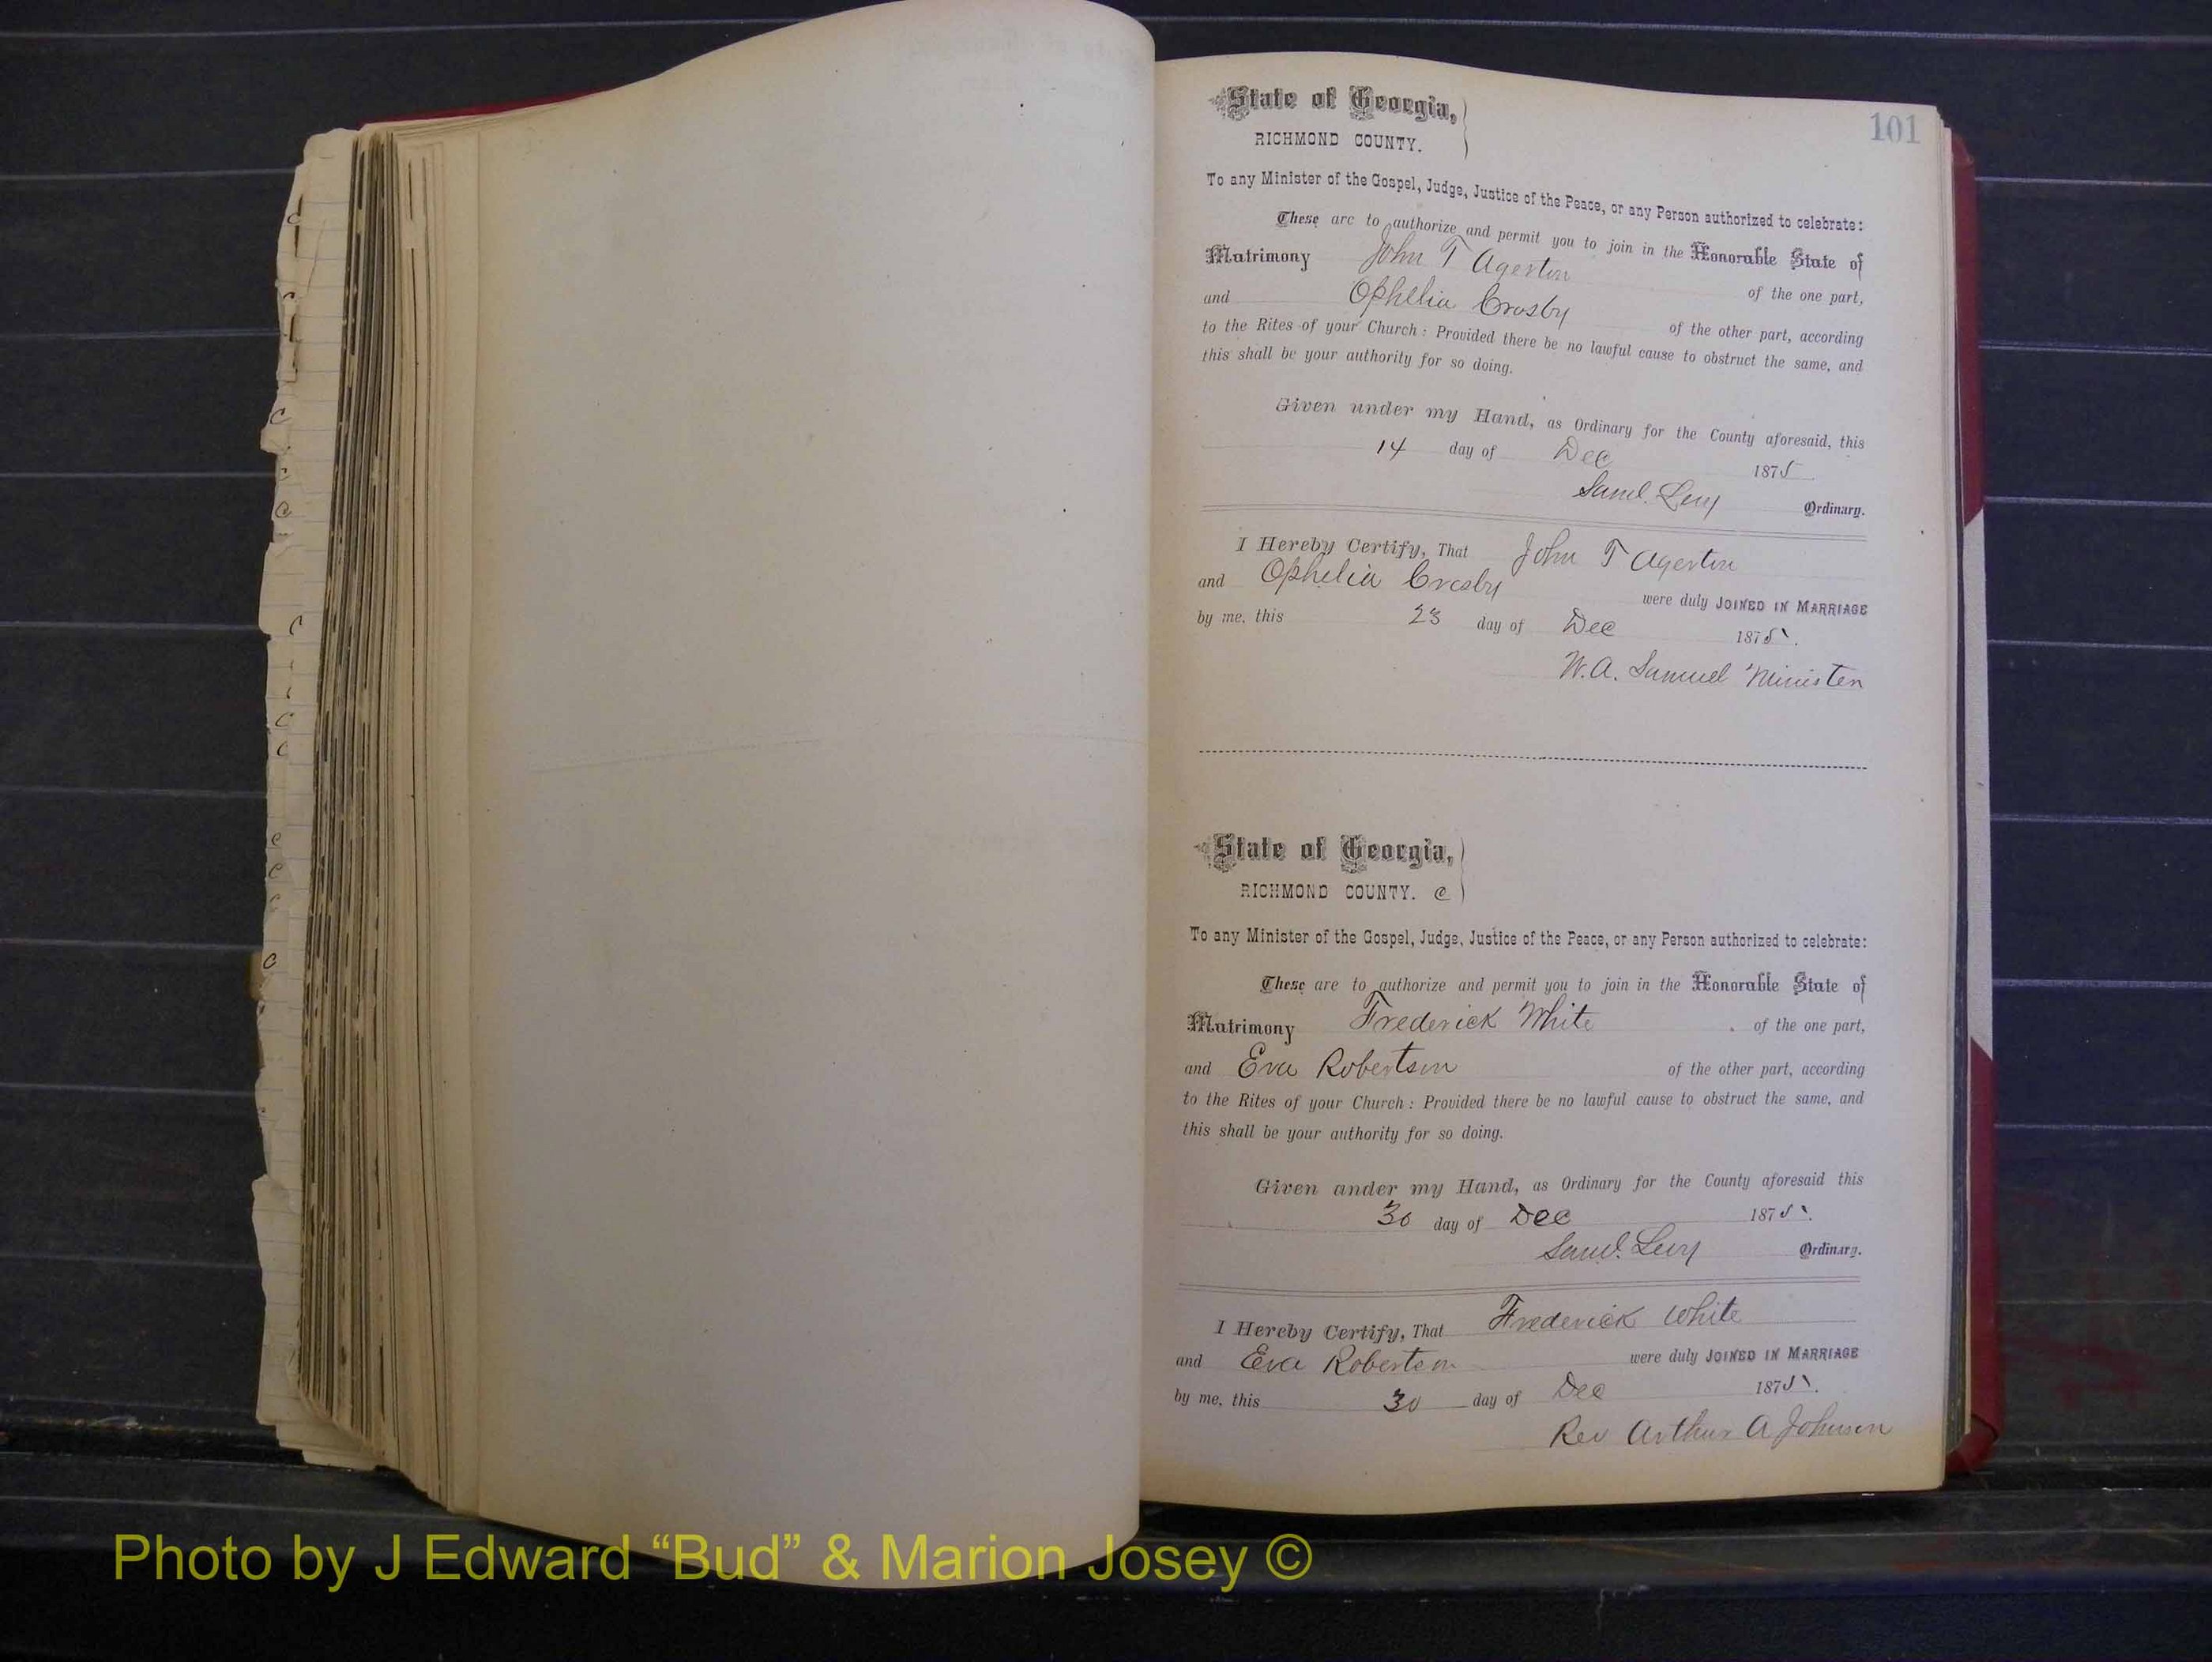 101
State of Georgia,
RICHMOND COUNTY.
To any Minister of the Gospel, Judge, Justice of the Peace, or any Person authorized to celebrate:
These are to authorize and permit you to join in the Honorable State of
Matrimony John T Agerton of the one part,
and Ophelia Crosby of the other part, according
to the Rites of your Church: Provided there be no lawful cause to obstruct the same, and
this shall be your authority for so doing.
Given under my Hand, as Ordinary for the County aforesaid, this
14 day of Dec 1875
Saml. Levy Ordinary.
I Hereby Certify, That John T Agerton
and Ophelia Crosby were duly JOINED IN MARRIAGE
by me, this 23 day of Dec 1875.
W. A. Samuel Minister
State of Georgia,
RICHMOND COUNTY. C
To any Minister of the Gospel, Judge, Justice of the Peace, or any Person authorized to celebrate:
These are to authorize and permit you to join in the Honorable State of
Matrimony Frederick White of the one part,
and Eva Robertson of the other part, according
to the Rites of your Church: Provided there be no lawful cause to obstruct the same, and
this shall be your authority for so doing.
Given under my Hand, as Ordinary for the County aforesaid this
30 day of Dec 1875.
Saml. Levy Ordinary.
I Hereby Certify, That Frederick White
and Eva Robertson were duly JOINED IN MARRIAGE
by me, this 30 day of Dec 1875.
Rev Arthur A Johnson
Photo by J Edward “Bud” & Marion Josey ©